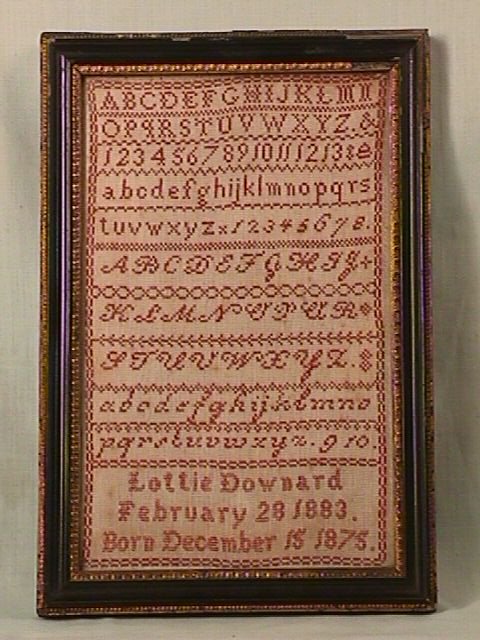 ABCDEFGHIJKLMN
OPQRSTUVWXYZ.&
12345678910111213&c
abcdefghijklmnopqrs
tuvwxyzx12345678.
ABCDEFGHIJ+
KLMNOPQR
STUVWXYZ.
abcdefghijklmno
pqrstuvwxyz.910.
Lottie Downard
February 28 1883.
Born December 15 1875.